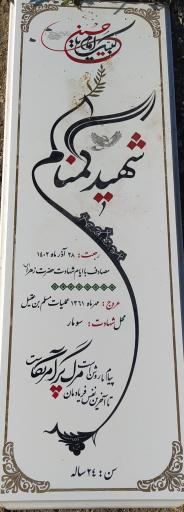 لبیک یا حسین
شهید گمنام
رجعت: ۲۸ آذر ماه ۱۴۰۲
مصادف با ایام شهادت حضرت زهرا
عروج: مهر ماه ۱۳۶۱ عملیات مسلم بن عقیل
محل شهادت: سومار
مرگ بر آمریکاست
تا آخرین نفس فریادمان
سن: ۲۴ ساله